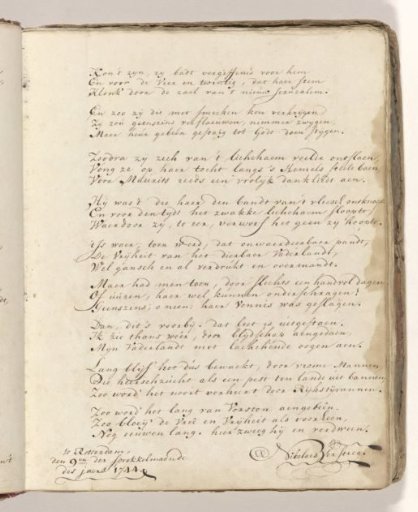 Kon't zyn, zy badt vergiffenis voor hem
En voor de Vier en twintig, dat haer stem
Klonk door de zael van 't nieuw Jerusalem.
En zoo zy die met smeeken kon verkrygen
Zy zou geenszins verflaeuwen, nimmer zwygen,
Maer heur gebeen gestaeg tot Godt doen stygen.
Zoodra zy zich van 't lichchaem voelde ontslaen
Vong ze op haer tocht langs 's Hemels steile baen
Voor Maurits reeds een vrolyk danklied aen.
Hy was't die haer den bandt van 't vleesch
En voor den tydt het zwakke lichchaem sloopte,
Waerdoor zy, te eer, verwerf het geen zy hoopte.
toen werd, dat onwaerdeerbaer pandt,
De Vryheit van het dierbaer Vaderlandt,
Wel gansch en al verdrukt en overmandt.
Maer had men toen, door slechts een handvol dagen
Of uuren, haer wel kunnen onderschragen?
Geenszins, o neen: haer vonnis was geslagen.
Dan, dit's voorby. dat leet is uitgestaen,
Ik zie thans weêr, door blydschap aengedaen,
Myn Vaderlandt met lachchende oogen aen.
Lang blyf het dus bewaekt, door vrome Mannen,
Die heerschzucht als een pest ten lande uit bannen
Zoo word' het nooit verheert door Ryks tirannen.
Zoo word' het lang van Vorsten aengebeên.
Zoo bloeij' de Vree en Vryheit als voorheen,
Nog eeuwen lang. hier zweeg hy en verdween.
te Rotterdam
den 9den der Sprokkelmaendt
des jaers 1744.